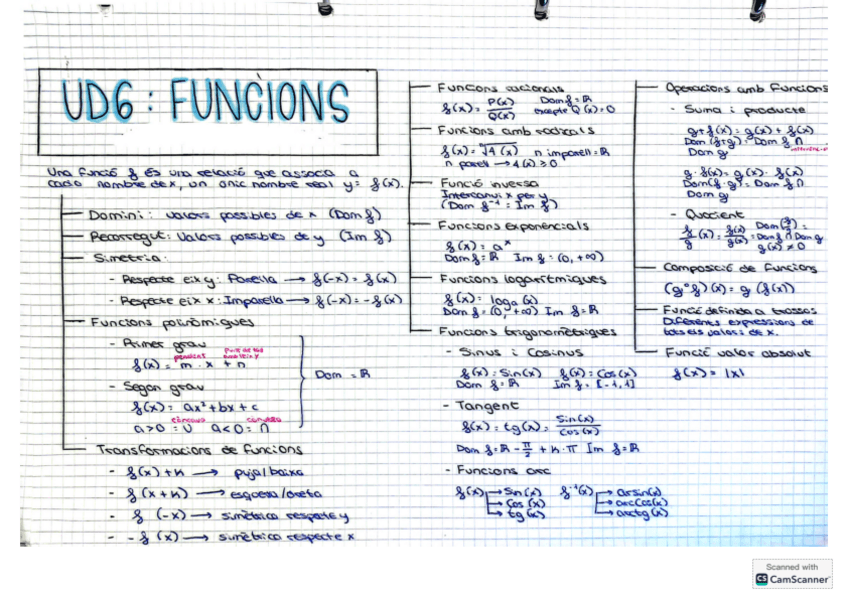 UD6: FUNCIONS
Una funció f és una relació que associa a
cada nombre de x, un únic nombre real y = f(x).
Domini: valors possibles de x (Dom f)
Recorregut: Valors possibles de y (Im f)
Simetria:
- Respecte eix y: Parella → f(-x) = f(x)
- Respecte eix x: Imparella → f(-x) = -f(x)
Funcions polinòmiques
- Primer grau
pendent
f(x) = m · x + n
- Segon grau
Dom = ℝ
f(x) = ax² + bx + c
còncava convexa
a>0 = ∪ a<0 = ∩
Transformacions de funcions
- f(x) + k → puja/baixa
- f(x+k) → esquerra/dreta
- f(-x) → simètrica respecte y
- -f(x) → simètrica respecte x
Funcions racionals
f(x) = P(x)/Q(x) Dom f = ℝ excepte Q(x) = 0
Funcions amb radicals
f(x) = ⁿ√4(x) n imparell = ℝ
n parell → 4(x) ≥ 0
Funció inversa
Intercanvi x per y
(Dom f⁻¹ = Im f)
Funcions exponencials
f(x) = aˣ
Dom f = ℝ Im f = (0, +∞)
Funcions logarítmiques
f(x) = logₐ(x)
Dom f = (0, +∞) Im f = ℝ
Funcions trigonomètriques
- Sinus i Cosinus
f(x) = Sin(x) f(x) = Cos(x)
Dom f = ℝ Im f = [-1,1]
- Tangent
f(x) = tg(x) = Sin(x)/Cos(x)
Dom f = ℝ - π/2 + k·π Im f = ℝ
- Funcions arc
f(x) → Sin(x) f⁻¹(x) → arsin(x)
→ Cos(x) → arcCos(x)
→ tg(x) → arctg(x)
Operacions amb Funcions
- Suma i producte
g+f(x) = g(x) + f(x)
Dom (f+g) = Dom f ∩
Dom g
g·f(x) = g(x) · f(x)
Dom(f·g) = Dom f ∩
Dom g
- Quocient
f/g (x) = f(x)/g(x) Dom(f/g) = Dom f ∩ Dom g
g(x) ≠ 0
Composició de Funcions
(g∘f)(x) = g(f(x))
Funció definida a trossos
Diferents expressions de
tots els valors de x.
Funció valor absolut
f(x) = |x|
Scanned with
CS CamScanner